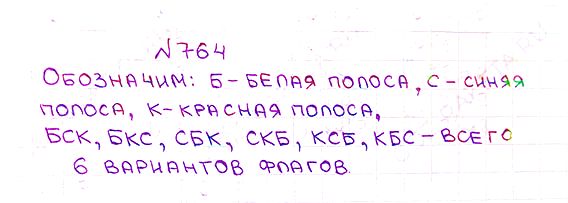 №764
Обозначим: Б-белая полоса, С-синяя
полоса, К-красная полоса,
БСК, БКС, СБК, СКБ, КСБ, КБС-всего
6 вариантов флагов.